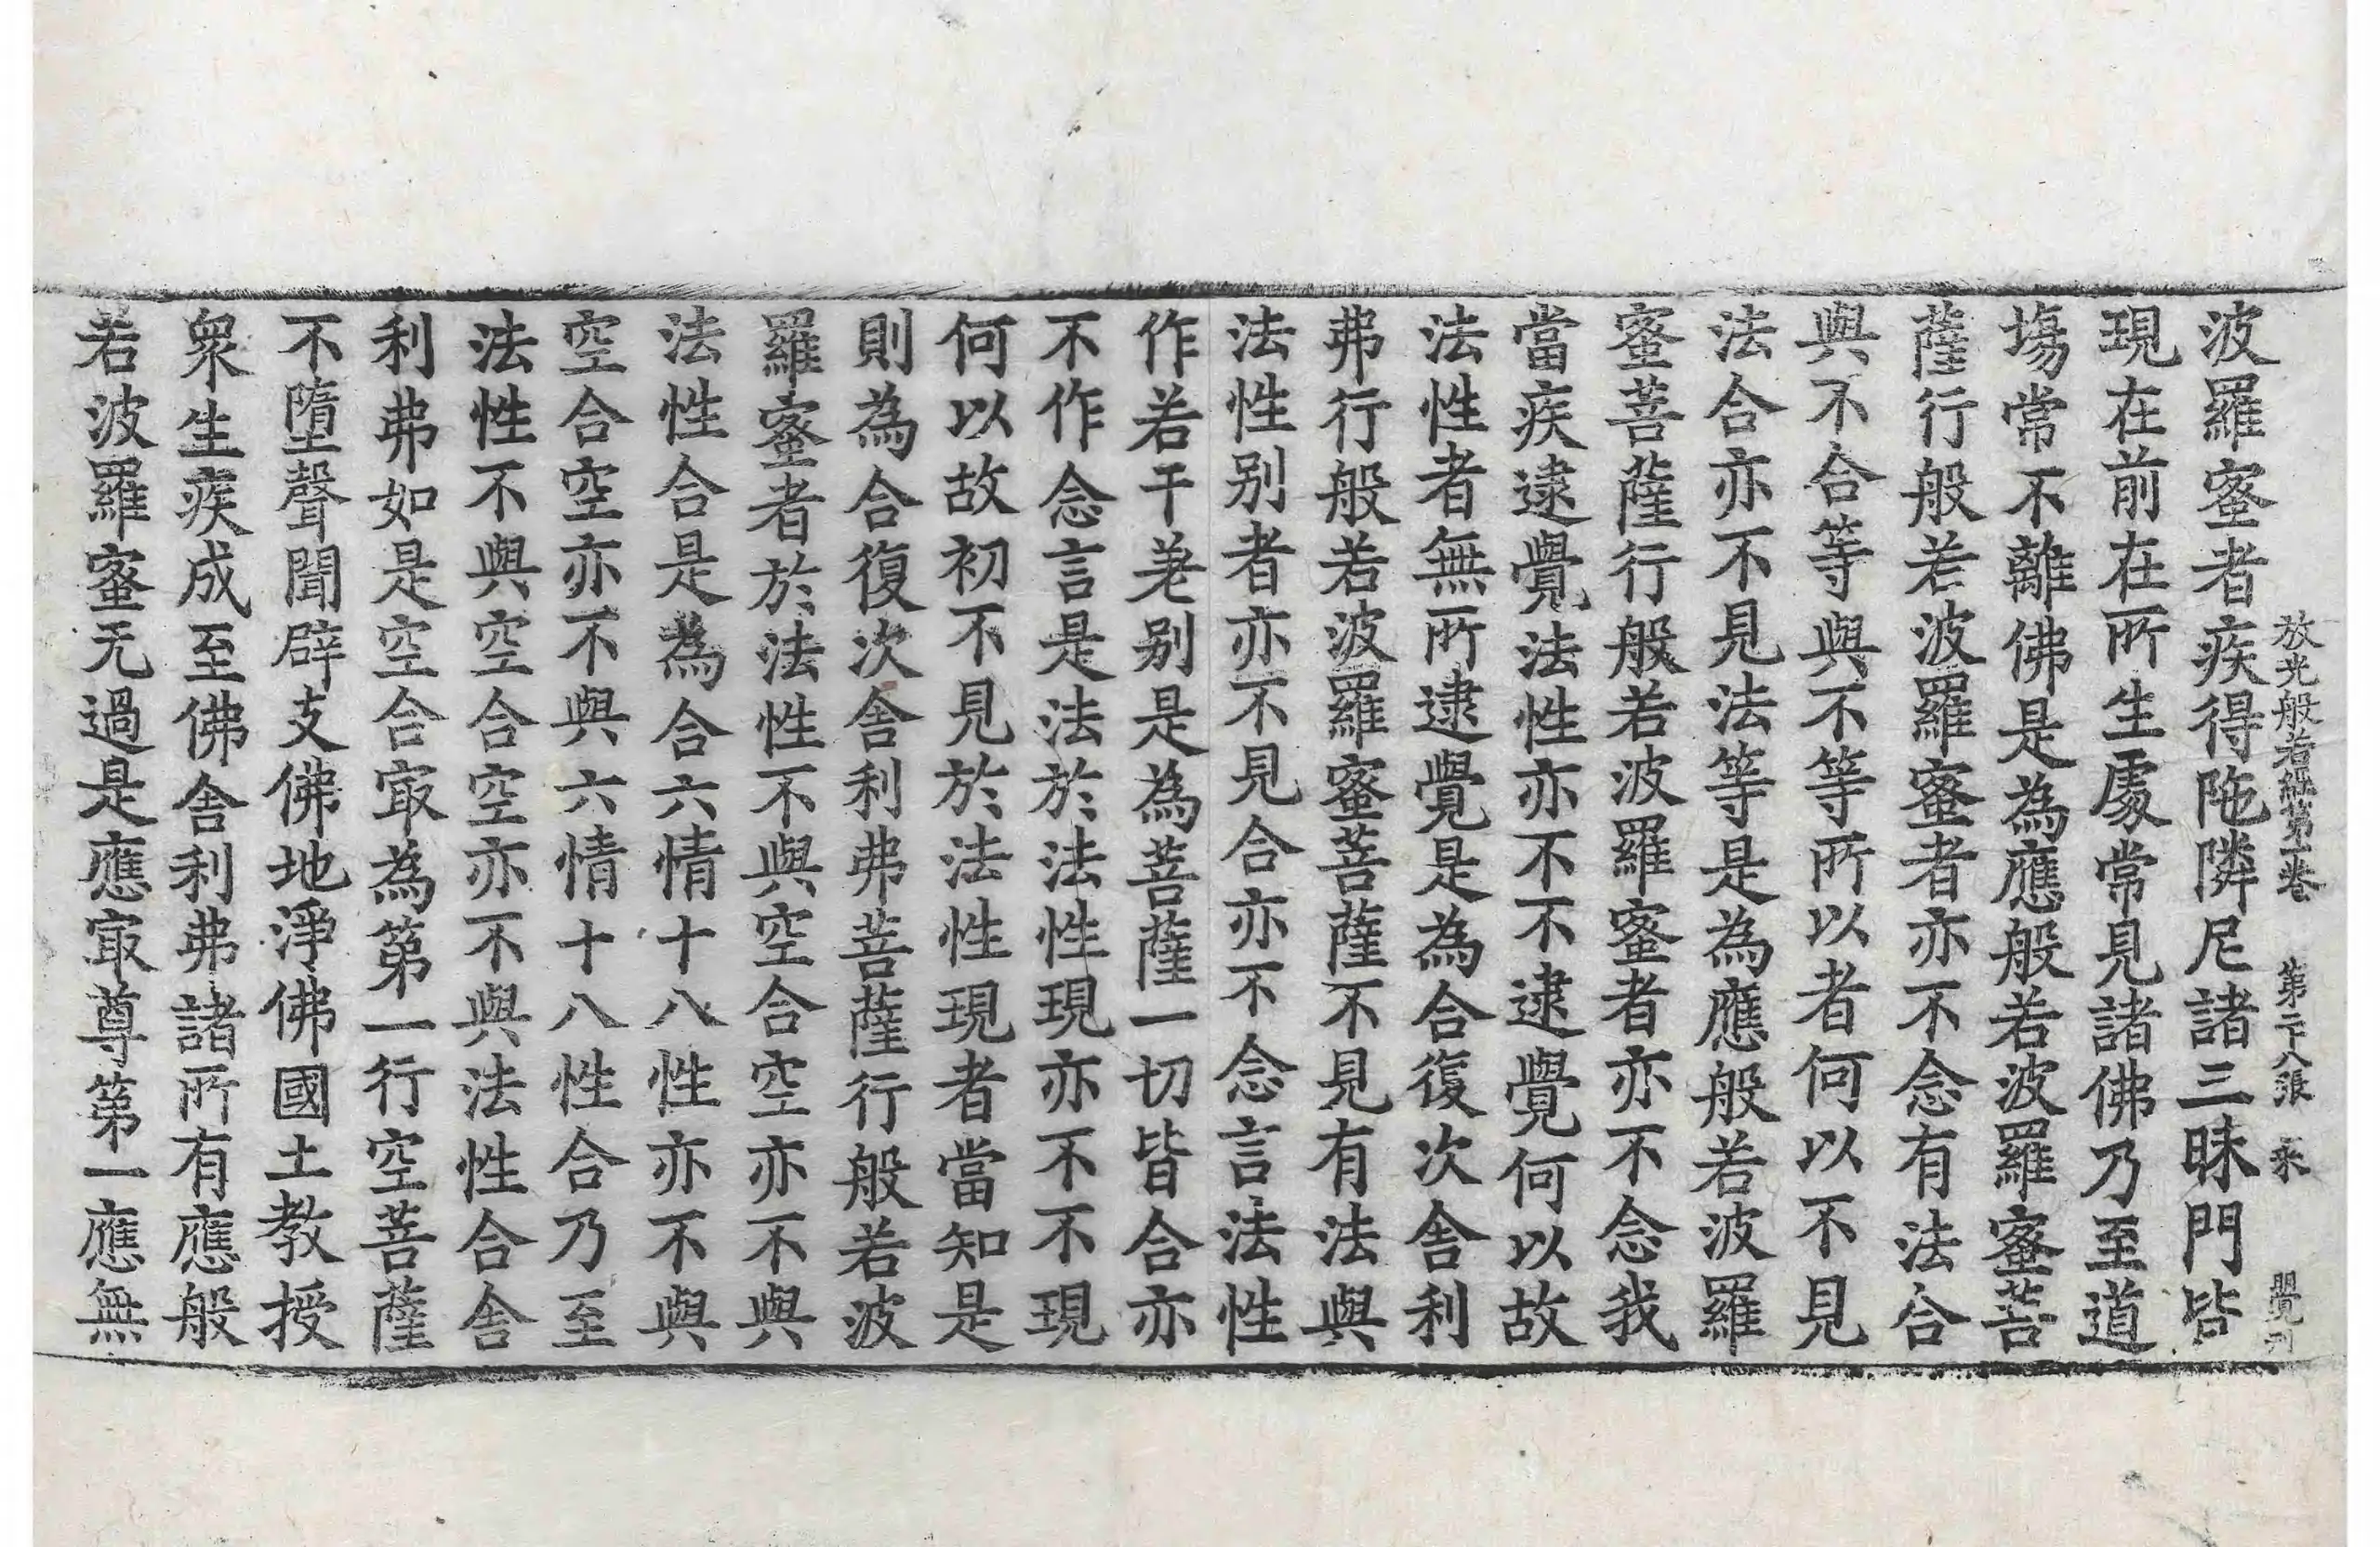 放光般若經第一卷 第二十八張 柰
波羅蜜者疾得陁隣尼諸三昧門皆
現在前在所生處常見諸佛乃至道
場常不離佛是為應般若波羅蜜菩
薩行般若波羅蜜者亦不念有法合
與不合等與不等所以者何以不見
法合亦不見法等是為應般若波羅
蜜菩薩行般若波羅蜜者亦不念我
當疾逮覺法性亦不不逮覺何以故
法性者無所逮覺是為合復次舍利
弗行般若波羅蜜菩薩不見有法與
法性別者亦不見合亦不念言法性
作若干差別是為菩薩一切皆合亦
不作念言是法於法性現亦不不現
何以故初不見於法性現者當知是
則為合復次舍利弗菩薩行般若波
羅蜜者於法性不與空合空亦不與
法性合是為合六情十八性亦不與
空合空亦不與六情十八性合乃至
法性不與空合空亦不與法性合舍
利弗如是空合㝡為第一行空菩薩
不墮聲聞辟支佛地淨佛國土教授
衆生疾成至佛舍利弗諸所有應般
若波羅蜜无過是應㝡尊第一應無